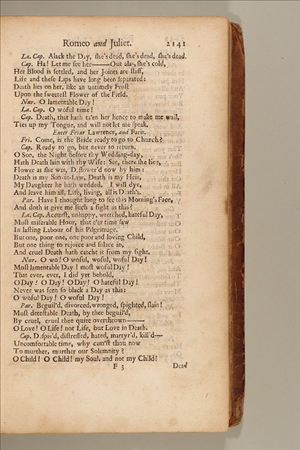 Romeo and Juliet. 2141
La. Cap. Alack the Day, she's dead, she's dead, she's dead.
Cap. Ha! Let me see her——Out alas, she's cold,
Her Blood is settled, and her Joints are stiff,
Life and these Lips have long been separated:
Death lies on her, like an untimely Frost
Upon the sweetest Flower of the Field.
Nur. O lamentable Day!
La. Cap. O woful time!
Cap. Death, that hath ta'en her hence to make me wail,
Ties up my Tongue, and will not let me speak.
Enter Friar Lawrence, and Paris.
Fri. Come, is the Bride ready to go to Church?
Cap. Ready to go, but never to return.
O Son, the Night before thy Wedding-day,
Hath Death lain with thy Wife: See, there she lies,
Flower as she was, Deflower'd now by him:
Death is my Son-in-Law, Death is my Heir,
My Daughter he hath wedded. I will dye,
And leave him all, Life, living, all is Death's.
Par. Have I thought long to see this Morning's Face,
And doth it give me such a sight as this?
La. Cap. Accurst, unhappy, wretched, hateful Day,
Most miserable Hour, that e'er time saw
In lasting Labour of his Pilgrimage.
But one, poor one, one poor and loving Child,
But one thing to rejoice and solace in,
And cruel Death hath catcht it from my sight.
Nur. O wo! O woful, woful, woful Day!
Most lamentable Day! most woful Day!
That ever, ever, I did yet behold,
O Day! O Day! O Day! O hateful Day!
Never was seen so black a Day as this:
O woful Day! O woful Day!
Par. Beguil'd, divorced, wronged, spighted, slain!
Most detestable Death, by thee beguil'd,
By cruel, cruel thee quite overthrown——
O Love! O Life! not Life, but Love in Death.
Cap. Despis'd, distressed, hated, martyr'd, kill'd—
Uncomfortable time, why cam'st thou now
To murther, murther our Solemnity?
O Child! O Child! my Soul, and not my Child!
F 3 Dead